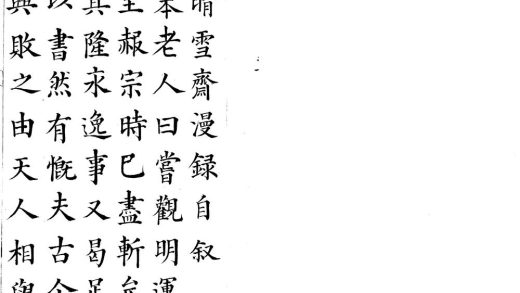 晴雪齋漫録自叙
本老人曰嘗觀明運
至赧宗時巳盡斬
其隆永逸事又曷足
以書然有慨夫古今
興敗之由天人相與